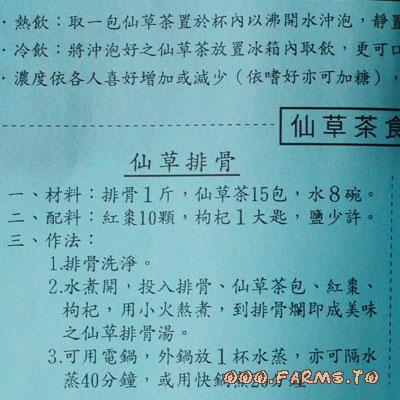 ·熱飲：取一包仙草茶置於杯內以沸開水沖泡，靜置
·冷飲：將沖泡好之仙草茶放置冰箱內取飲，更可口
·濃度依各人喜好增加或減少（依嗜好亦可加糖），
仙草茶食
仙草排骨
一、材料：排骨1斤，仙草茶15包，水8碗。
二、配料：紅棗10顆，枸杞1大匙，鹽少許。
三、作法：
1.排骨洗淨。
2.水煮開，投入排骨、仙草茶包、紅棗、
枸杞，用小火熬煮，到排骨爛即成美味
之仙草排骨湯。
3.可用電鍋，外鍋放1杯水蒸，亦可隔水
蒸40分鐘，或用快鍋蒸20分鐘
www.FARMS.TO